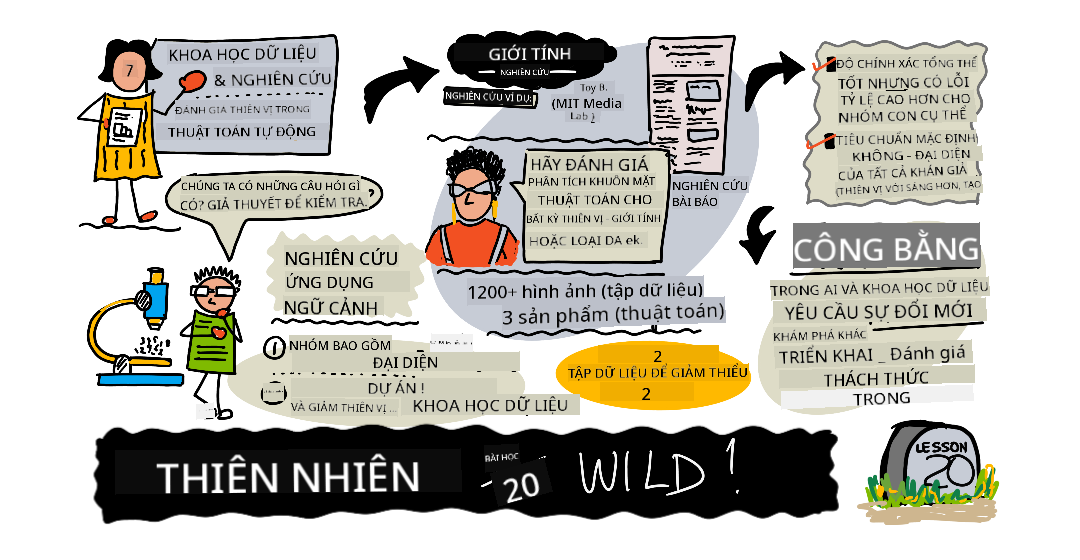 7
KHOA HỌC DỮ LIỆU
& NGHIÊN CỨU
ĐÁNH GIA THIÊN VỊ TRONG
THUẬT TOÁN TỰ ĐỘNG
CHÚNG TA CÓ NHỮNG CÂU HỎI GÌ
CÓ? GIẢ THUYẾT ĐỂ KIỂM TRA.
?
NGHIÊN CỨU
ỨNG DỤNG
NGỮ CẢNH
1 NHÓM BAO GỒM
ĐẠI DIỆN
DỰ ÁN !
VÀ GIẢM THIÊN VỊ ...
KHOA HỌC DỮ LIỆU
GIỚI TÍNH
NGHIÊN CỨU
NGHIÊN CỨU VÍ DỤ:
Toy B.
(MIT Media
Lab )
HÃY ĐÁNH GIÁ
PHÂN TÍCH KHUÔN MẶT
THUẬT TOÁN CHO
BẤT KỲ THIÊN VỊ - GIỚI TÍNH
HOẶC LOẠI DA ek.
NGHIÊN CỨU
BÀI BÁO
1200+ hình ảnh (tập dữ liệu)
3 sản phẩm (thuật toán)
2
TẬP DỮ LIỆU ĐỂ GIẢM THIỂU
2
ĐỘ CHÍNH XÁC TỔNG THỂ
TỐT NHƯNG CÓ LỖI
TỶ LỆ CAO HƠN CHO
NHÓM CON CỤ THỂ
TIÊU CHUẨN MẶC ĐỊNH
KHÔNG - ĐẠI DIỆN
CỦA TẤT CẢ KHÁN GIẢ
(THIÊN VỊ VỚI SÁNG HƠN, TAO
CÔNG BẰNG
TRONG AI VÀ KHOA HỌC DỮ LIỆU
YÊU CẦU SỰ ĐỔI MỚI
KHÁM PHÁ KHÁC
TRIỂN KHAI _ Đánh giá
THÁCH THỨC
TRONG
THIÊN NHIÊN
BÀI HỌC
- 20
WILD!
LESSON
20